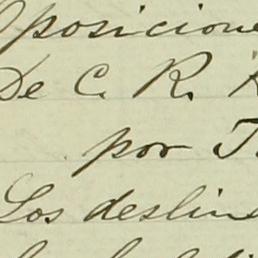 Oposicione
De C. R.
por T
Los deslin